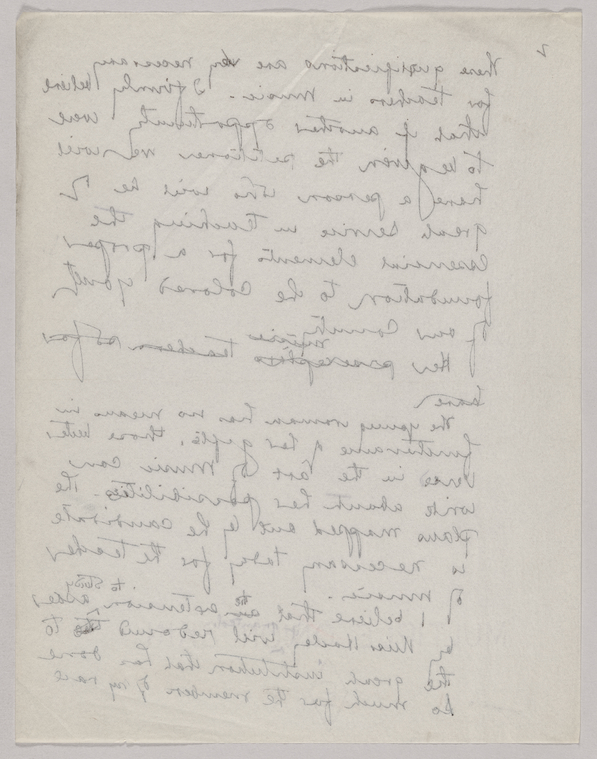 2
These qualifications are very necessary
for teachers in music. I firmly believe
that if another opportunity were
to be given the petitioner we will
have a person who will be
great service in teaching the
essential elements for a proper
foundation to the colored youth
of our Country
Her music teachers as far
have
The young woman has no means in
furtherance of her gifts, those
in the art of music can
write about her possibilities. The
plans mapped out by the candidate
is necessary today for the teacher
of music.
I believe that the extension, to study
by Miss will redound to
the great institution that has done
so much for the member of my race